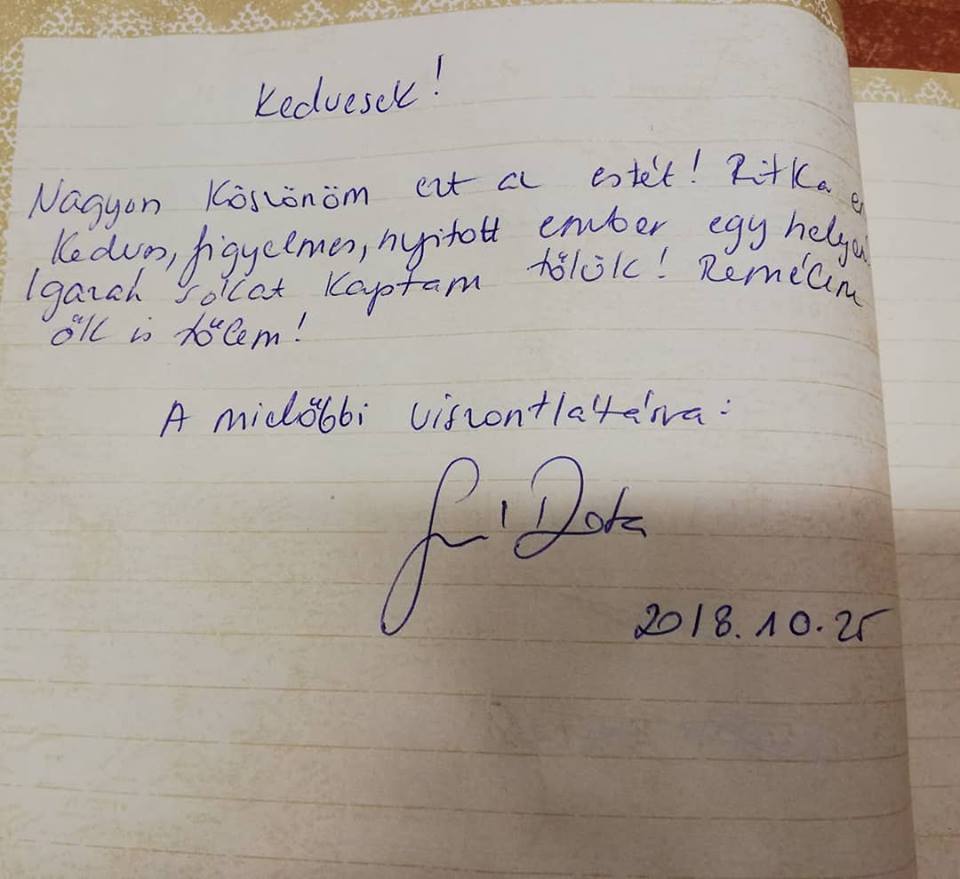 Kedvesek!
Nagyon köszönöm ezt az estét! Ritka
kedves, figyelmes, nyitott ember egy helyen.
Igazán sokat kaptam tőlük! Remélem
ők is tőlem!
A mielőbbi viszontlátásra:
Dóra
2018.10.25